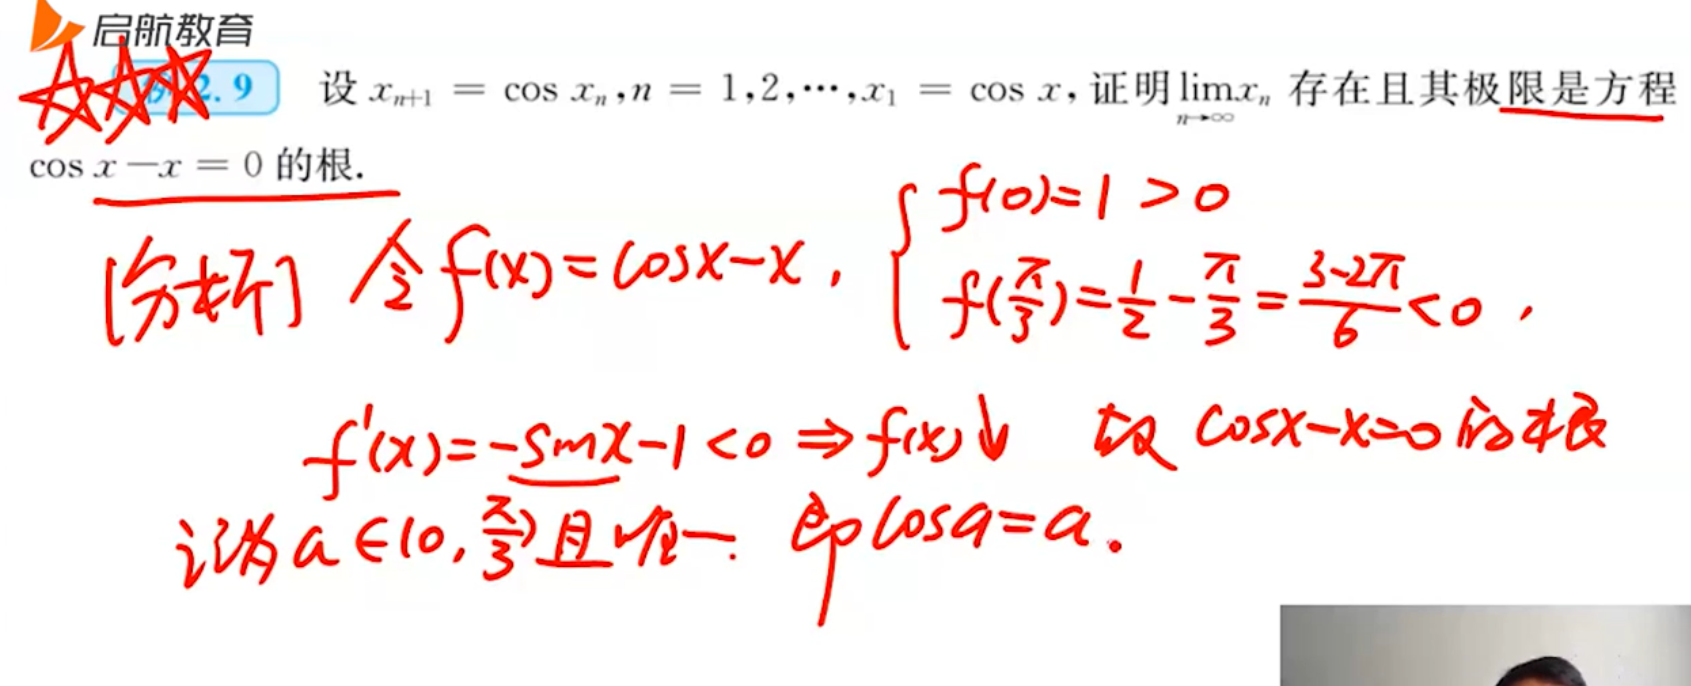 启航教育
例2.9 设 xₙ₊₁ = cos xₙ, n = 1,2,⋯, x₁ = cos x, 证明 lim xₙ 存在且其极限是方程
n→∞
cos x − x = 0 的根.
[分析] 令 f(x) = cosx − x , { f(0) = 1 > 0
f(π/3) = 1/2 − π/3 = (3−2π)/6 < 0 ,
f'(x) = −sinx − 1 < 0 ⇒ f(x)↓ 故 cosx−x=0 的根
记为 a ∈ (0, π/3) 且唯一. 即 cosa = a .